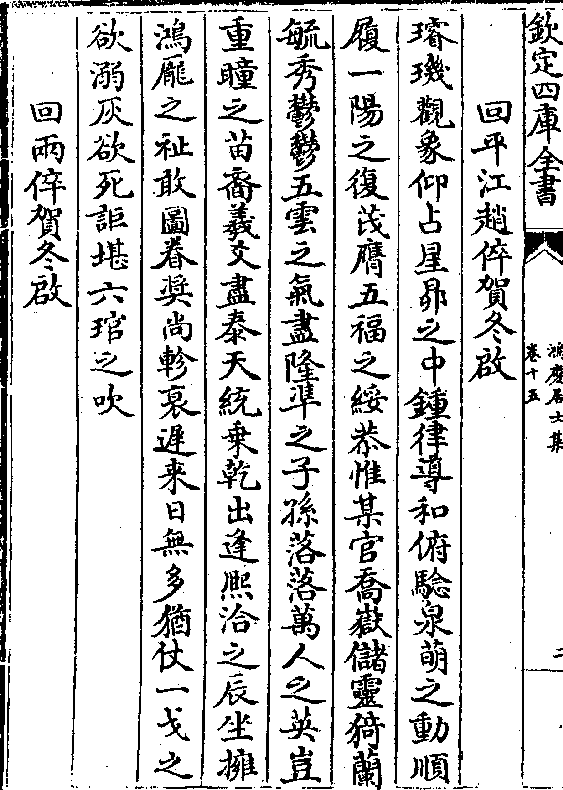 欽定四庫全書
鴻慶居士集
卷十五
二
回平江趙倅賀冬啟
璿璣觀象仰占星昴之中鍾律導和俯驗泉萌之動順
履一陽之復茂膺五福之綏恭惟某官喬嶽儲靈猗蘭
毓秀鬱鬱五雲之氣盡隆準之子孫落落萬人之英豈
重瞳之苗裔羲文盡泰天統乗乾出逢熙洽之辰坐擁
鴻厖之祉敢圖眷奨尚軫衰遲来日無多猶仗一戈之
欲溺灰欲死詎堪六琯之吹
回兩倅賀冬啟